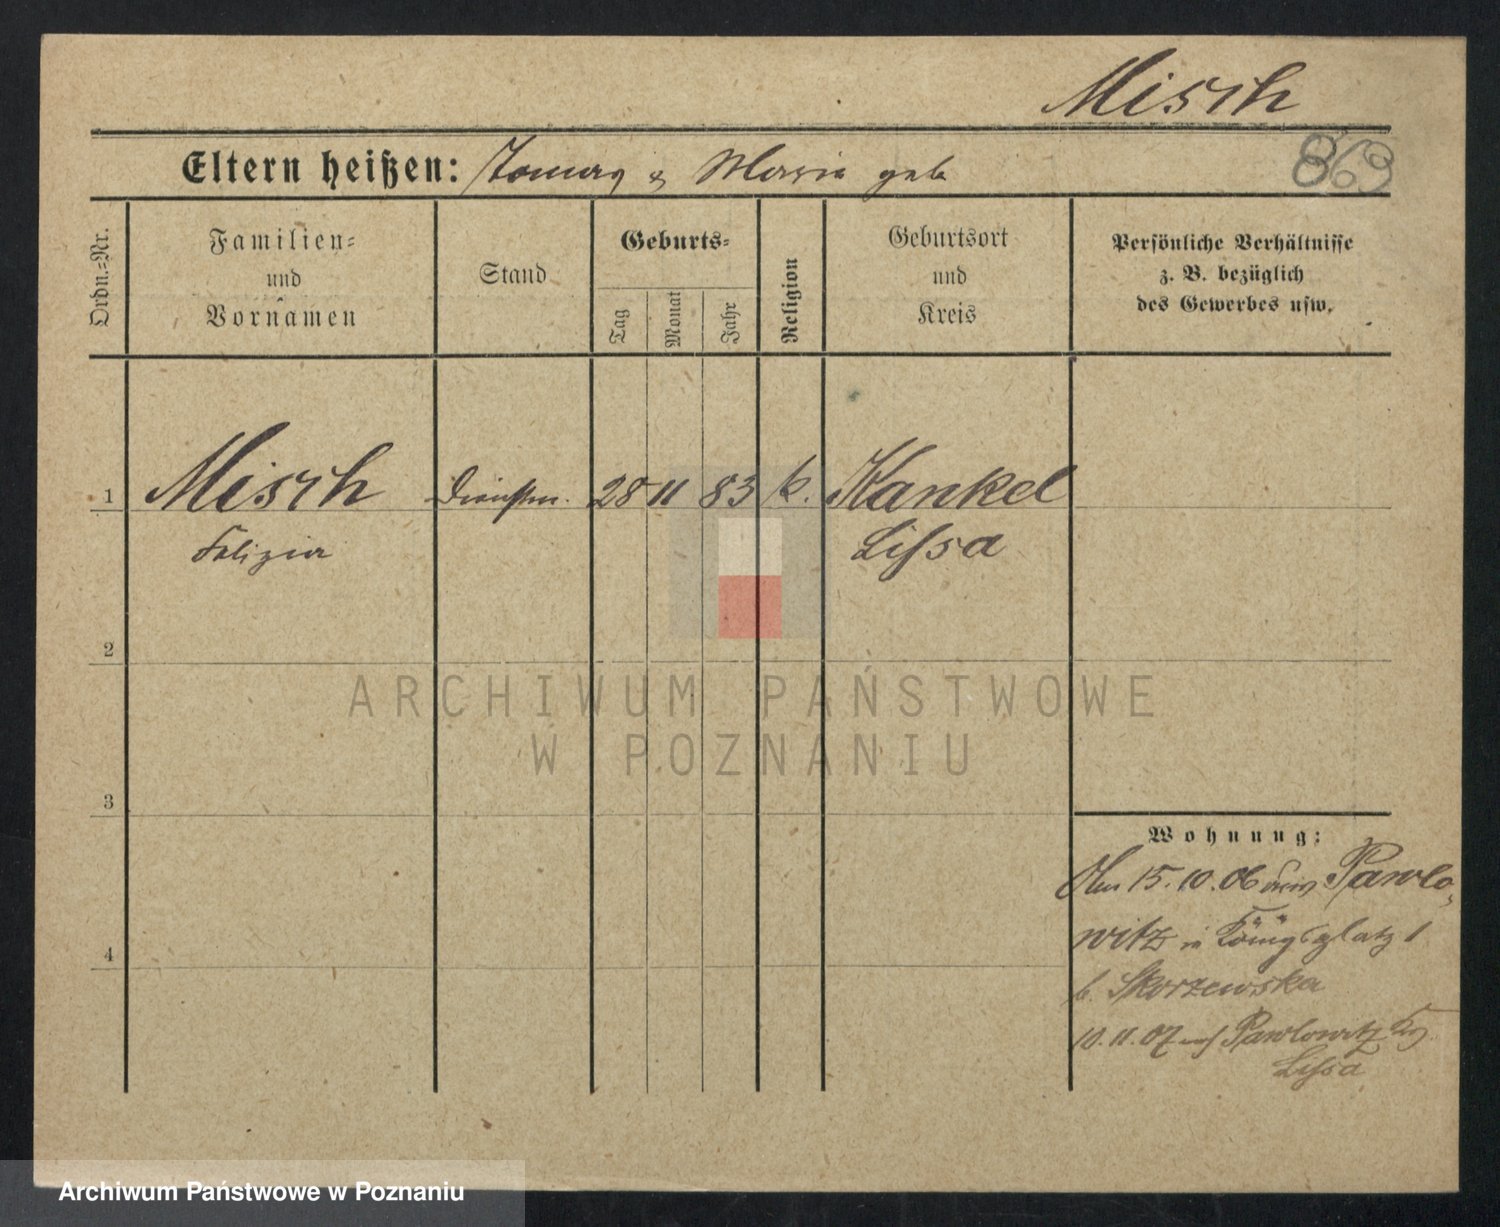 Misch
869
Eltern heißen: Tomaz & Maria geb
Ordn.-Nr.
Familien-
und
Vornamen
Stand
Geburts-
Tag
Monat
Jahr
Religion
Geburtsort
und
Kreis
Persönliche Verhältnisse
z. B. bezüglich
des Gewerbes usw.
1 Misch Dienstm. 28 11 83 k. Kankel
Felizia Lissa
2
3
4
Wohnung:
Am 15.10.06 Pawlo-
witz in Königsplatz 1
b. Skorzewska
10.11.07 Pawlowitz Krs
Lissa
ARCHIWUM PAŃSTWOWE
W POZNANIU
Archiwum Państwowe w Poznaniu